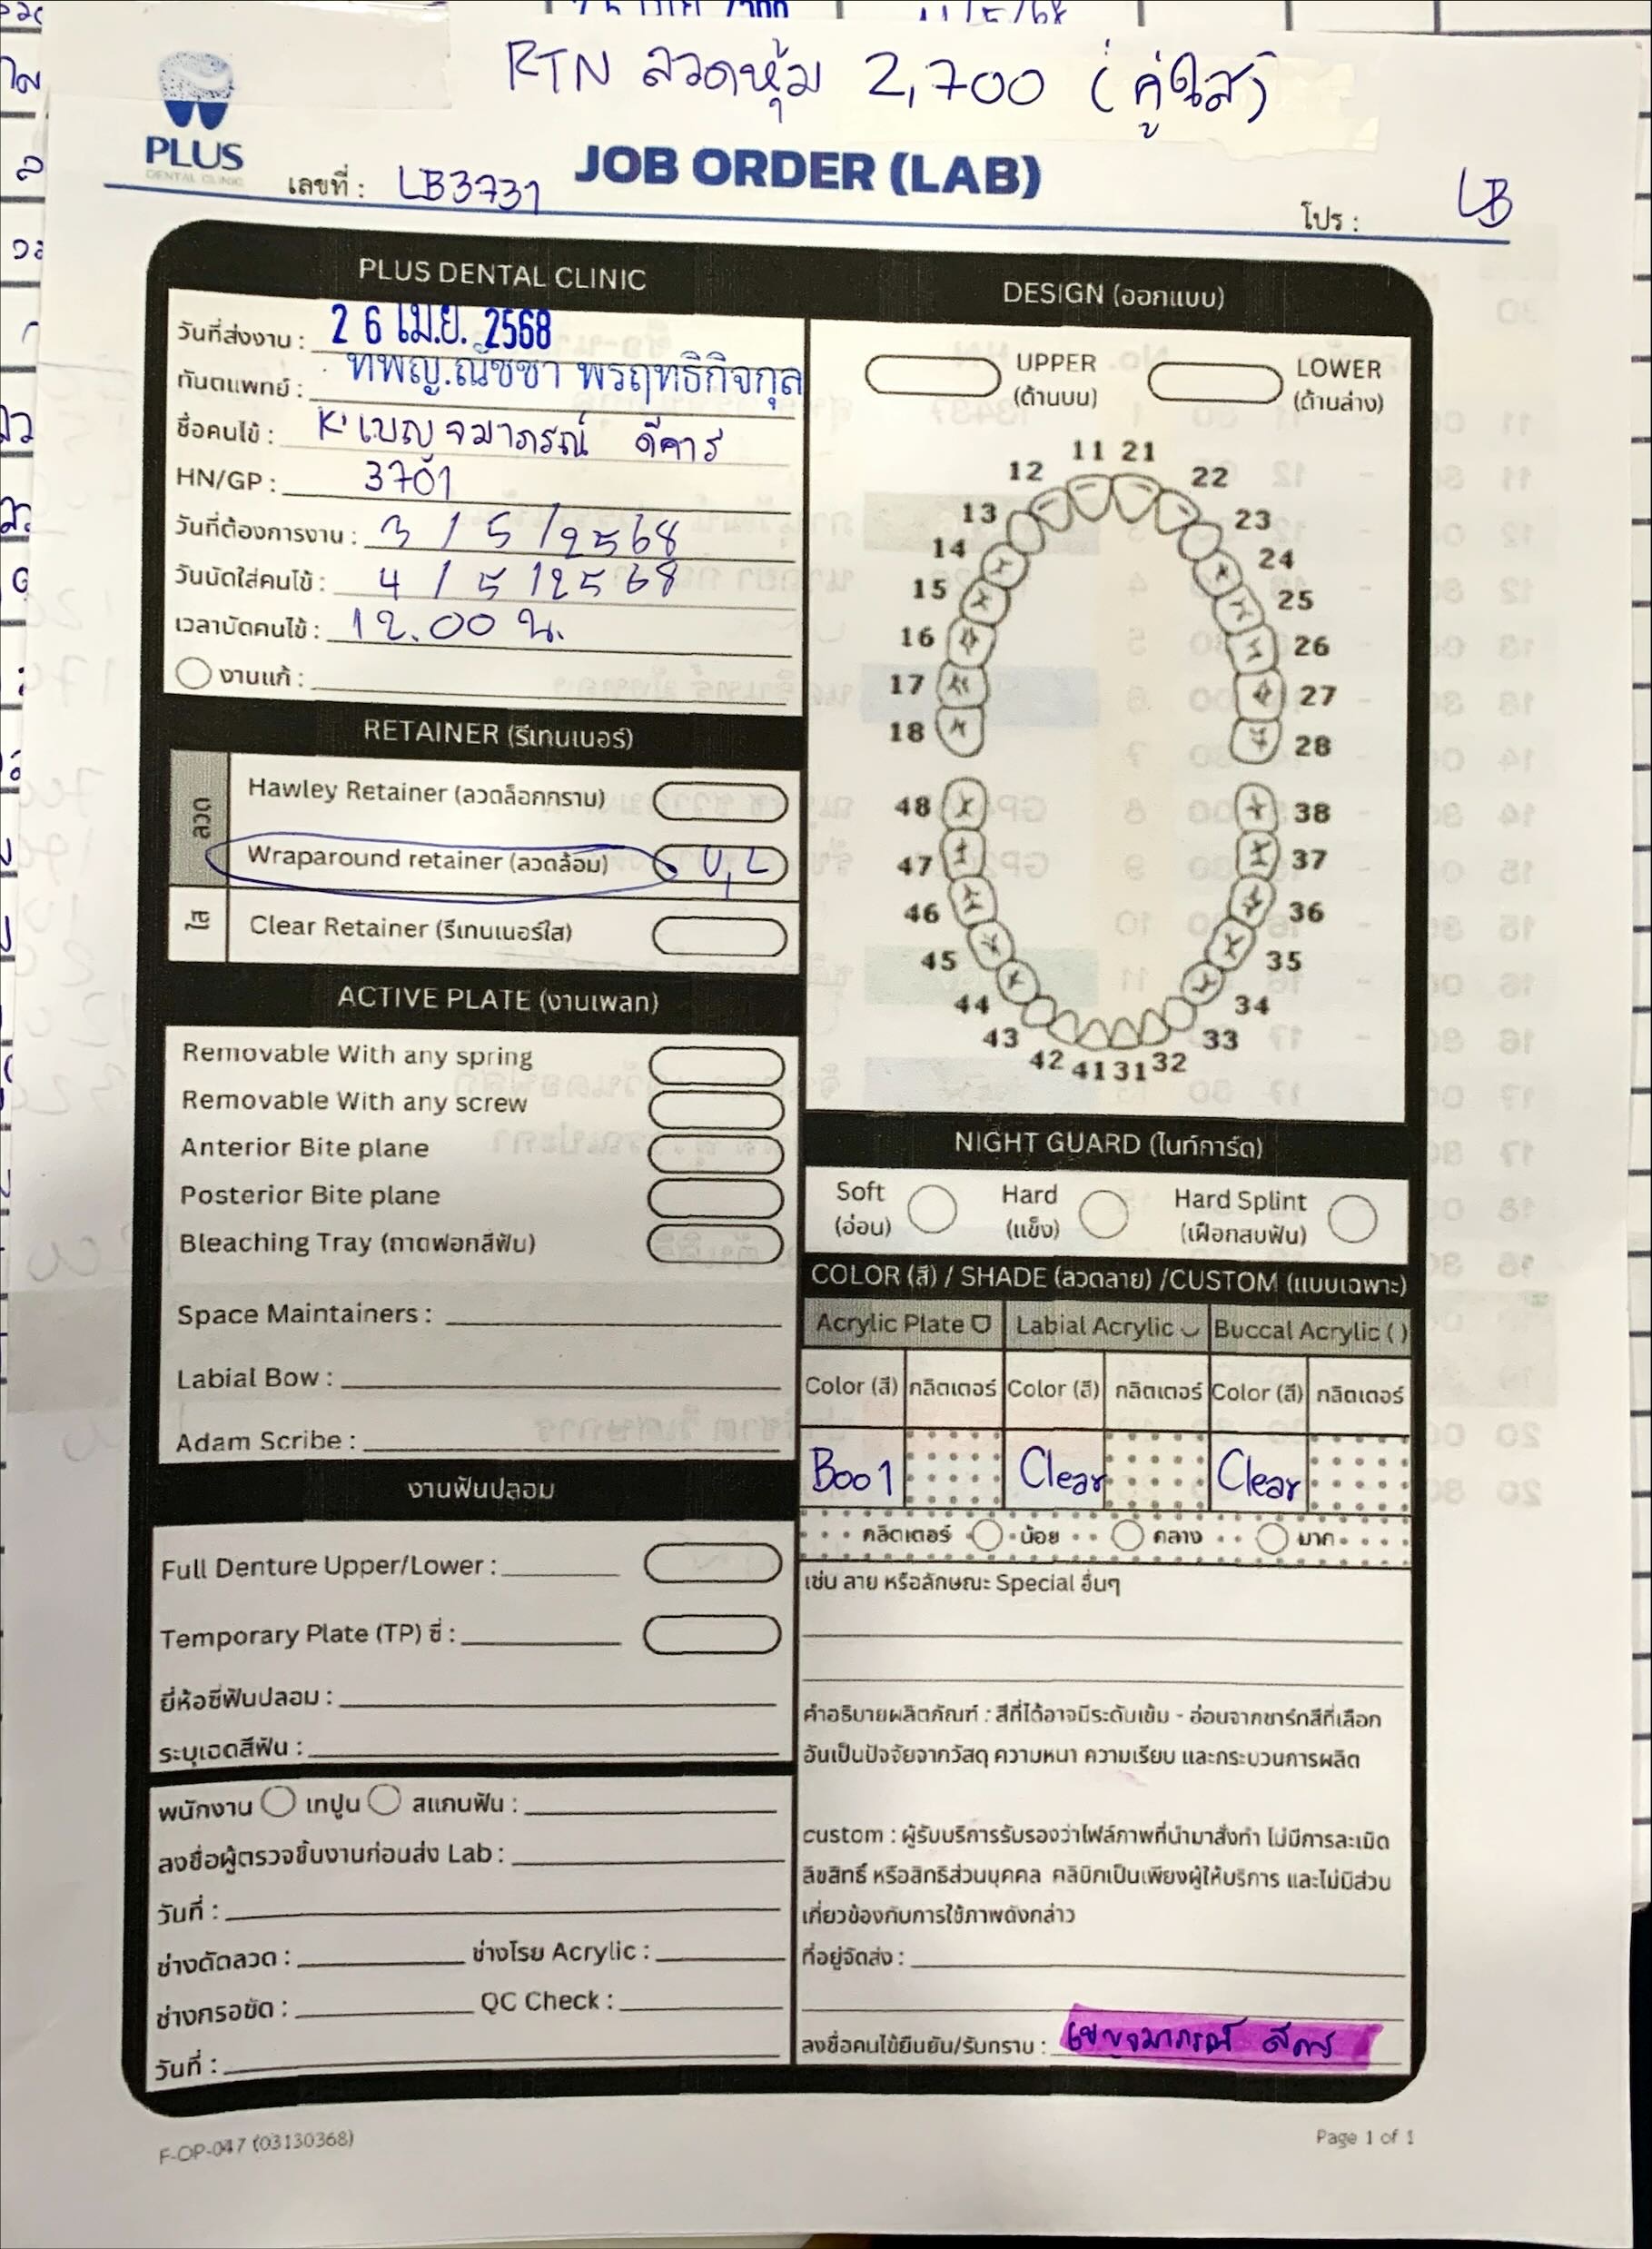 RTN ลวดหุ้ม 2,700 (คู่ใส)
PLUS
DENTAL CLINIC
เลขที่ : LB3731
JOB ORDER (LAB)
โปร : LB
PLUS DENTAL CLINIC
วันที่ส่งงาน : 26 เม.ย. 2568
ทันตแพทย์ : ทพญ.ณัชชา พรฤทธิกิจกุล
ชื่อคนไข้ : K'เบญจมาภรณ์ ดีคาร
HN/GP : 3701
วันที่ต้องการงาน : 3 / 5 / 2568
วันนัดใส่คนไข้ : 4 / 5 / 2568
เวลานัดคนไข้ : 12.00 น.
งานแก้ :
RETAINER (รีเทนเนอร์)
ลวด
Hawley Retainer (ลวดล็อกกราม)
Wraparound retainer (ลวดล้อม) U, L
ใส
Clear Retainer (รีเทนเนอร์ใส)
ACTIVE PLATE (งานเพลท)
Removable With any spring
Removable With any screw
Anterior Bite plane
Posterior Bite plane
Bleaching Tray (ถาดฟอกสีฟัน)
Space Maintainers :
Labial Bow :
Adam Scribe :
งานฟันปลอม
Full Denture Upper/Lower :
Temporary Plate (TP) ซี่ :
ยี่ห้อซี่ฟันปลอม :
ระบุเฉดสีฟัน :
พนักงาน เทปูน สแกนฟัน :
ลงชื่อผู้ตรวจชิ้นงานก่อนส่ง Lab :
วันที่ :
ช่างดัดลวด : ช่างโรย Acrylic :
ช่างกรอขัด : QC Check :
วันที่ :
DESIGN (ออกแบบ)
UPPER LOWER
(ด้านบน) (ด้านล่าง)
11 21
12 22
13 23
14 24
15 25
16 26
17 27
18 28
48 38
47 37
46 36
45 35
44 34
43 33
42 41 31 32
NIGHT GUARD (ไนท์การ์ด)
Soft Hard Hard Splint
(อ่อน) (แข็ง) (เฝือกสบฟัน)
COLOR (สี) / SHADE (ลวดลาย) /CUSTOM (แบบเฉพาะ)
Acrylic Plate Labial Acrylic Buccal Acrylic ( )
Color (สี) กลิตเตอร์ Color (สี) กลิตเตอร์ Color (สี) กลิตเตอร์
B001 Clear Clear
กลิตเตอร์ น้อย กลาง มาก
เช่น ลาย หรือลักษณะ Special อื่นๆ
คำอธิบายผลิตภัณฑ์ : สีที่ได้อาจมีระดับเข้ม - อ่อนจากชาร์ทสีที่เลือก
อันเป็นปัจจัยจากวัสดุ ความหนา ความเรียบ และกระบวนการผลิต
custom : ผู้รับบริการรับรองว่าไฟล์ภาพที่นำมาสั่งทำ ไม่มีการละเมิด
ลิขสิทธิ์ หรือสิทธิส่วนบุคคล คลินิกเป็นเพียงผู้ให้บริการ และไม่มีส่วน
เกี่ยวข้องกับการใช้ภาพดังกล่าว
ที่อยู่จัดส่ง :
ลงชื่อคนไข้ยืนยัน/รับทราบ : เบญจมาภรณ์ ดีคาร
F-OP-047 (03130368)
Page 1 of 1